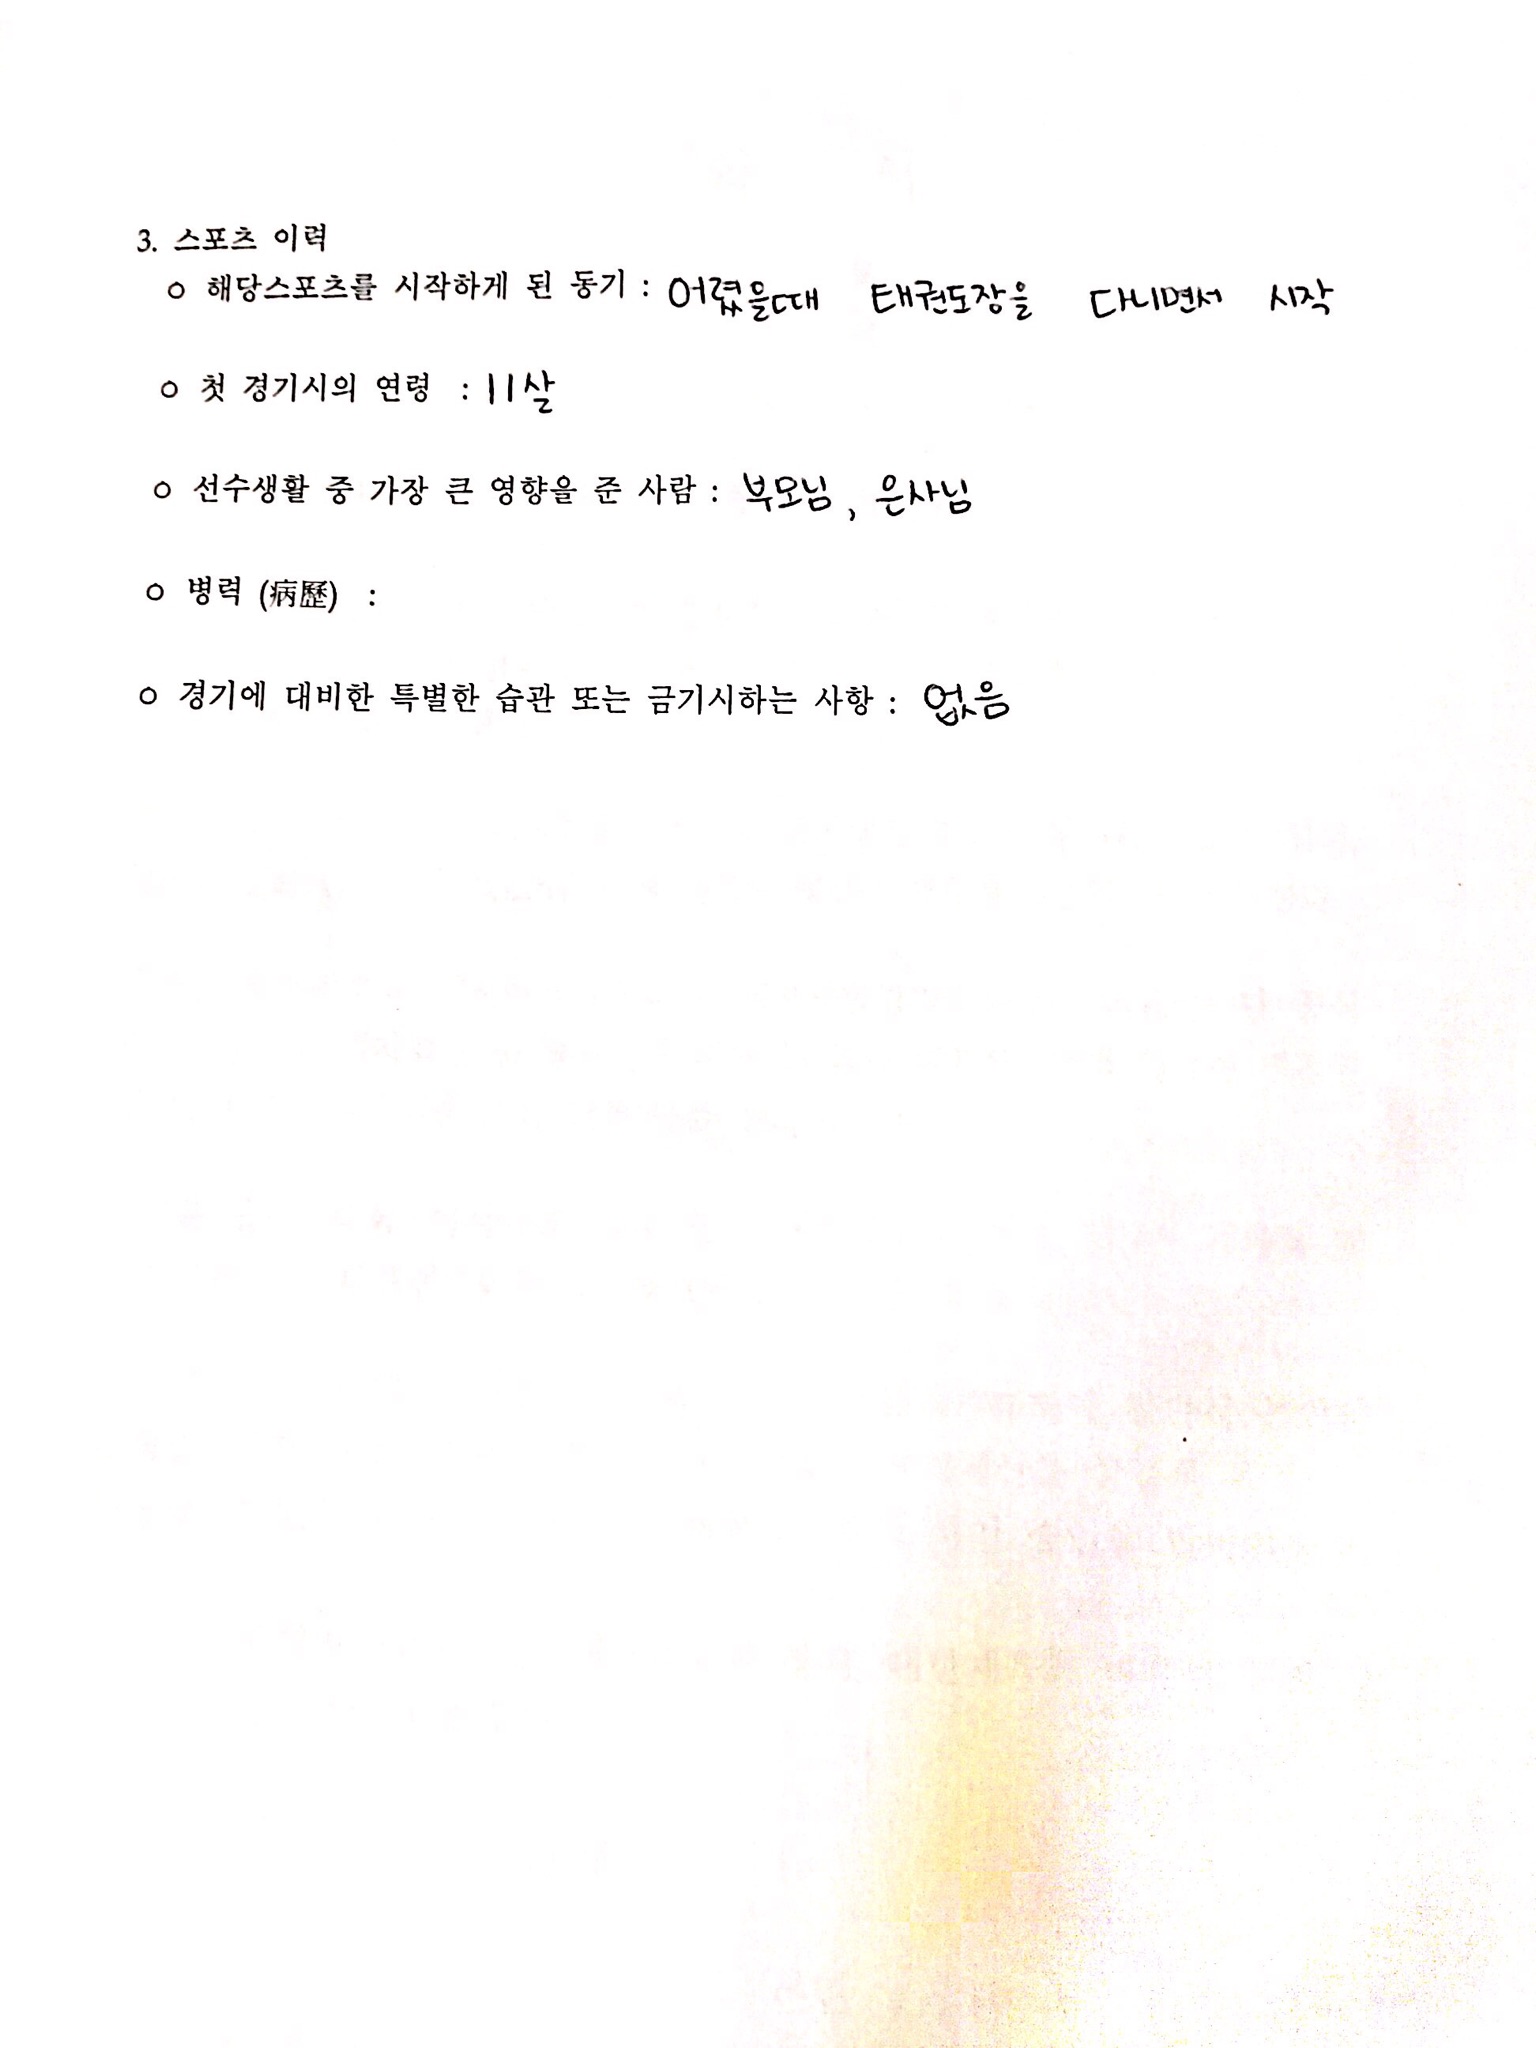 3. 스포츠 이력
○ 해당스포츠를 시작하게 된 동기 : 어렸을때 태권도장을 다니면서 시작
○ 첫 경기시의 연령 : 11살
○ 선수생활 중 가장 큰 영향을 준 사람 : 부모님, 은사님
○ 병력 (病歷) :
○ 경기에 대비한 특별한 습관 또는 금기시하는 사항 : 없음